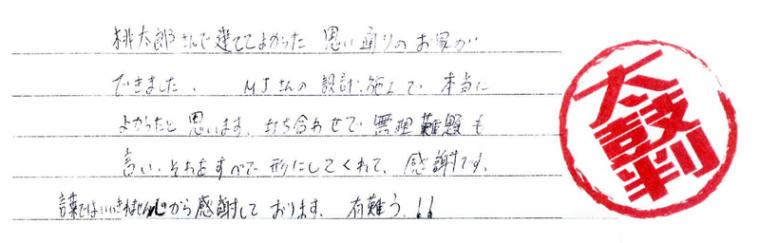 桃太郎さんで建ててよかった 思い通りのお家が
できました。 MJさんの設計.施工で 本当に
よかったと思います。打ち合わせで無理難題も
言い、それをすべて形にしてくれて、感謝です。
言葉ではいいきれません心から感謝しております。有難う!!
太鼓判